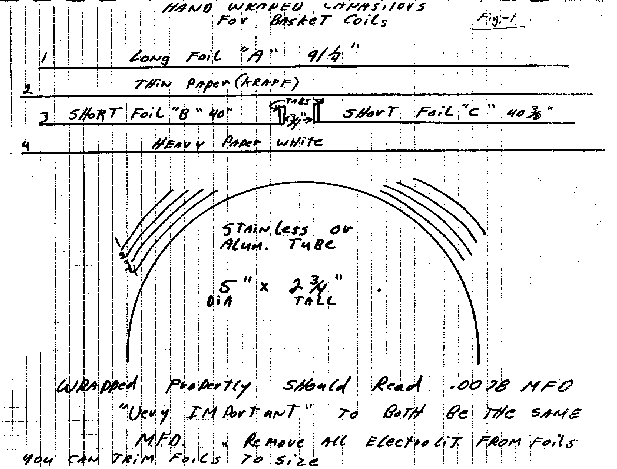 HAND WRAPED CAPASITORS
FOR BASKET COILS
Fig-1
1 LONG FOIL "A"
2 THIN PAPER (KRAFT)
TABS
3 SHORT FOIL "B" 40" 3/4" SHORT FOIL "C" 40 3/8"
4 HEAVY PAPER WHITE
STAINLESS OR
ALUM. TUBE
5" x 2 3/4"
DIA TALL
WRAPPED PROPERLY SHOULD READ .0078 MFD
"VERY IMPORTANT" TO BOTH BE THE SAME
MFD. REMOVE ALL ELECTROLIT FROM FOILS
YOU CAN TRIM FOILS TO SIZE